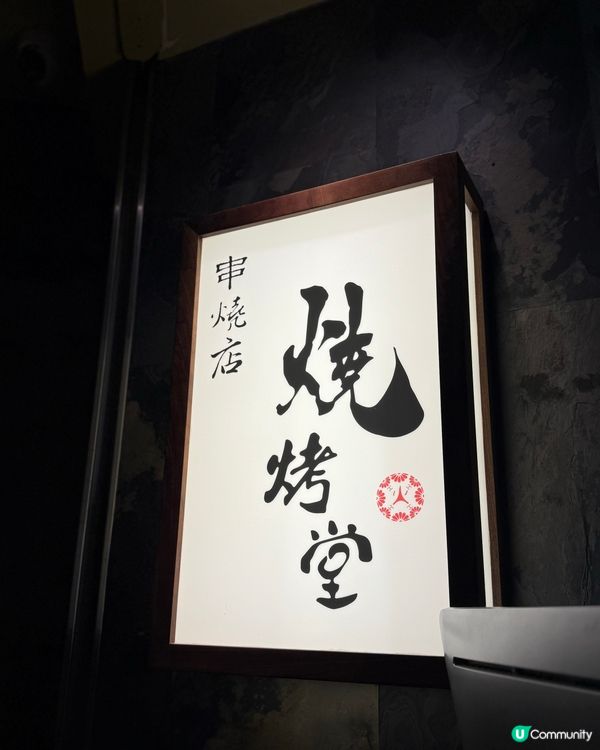 串燒店
燒烤堂
U Community